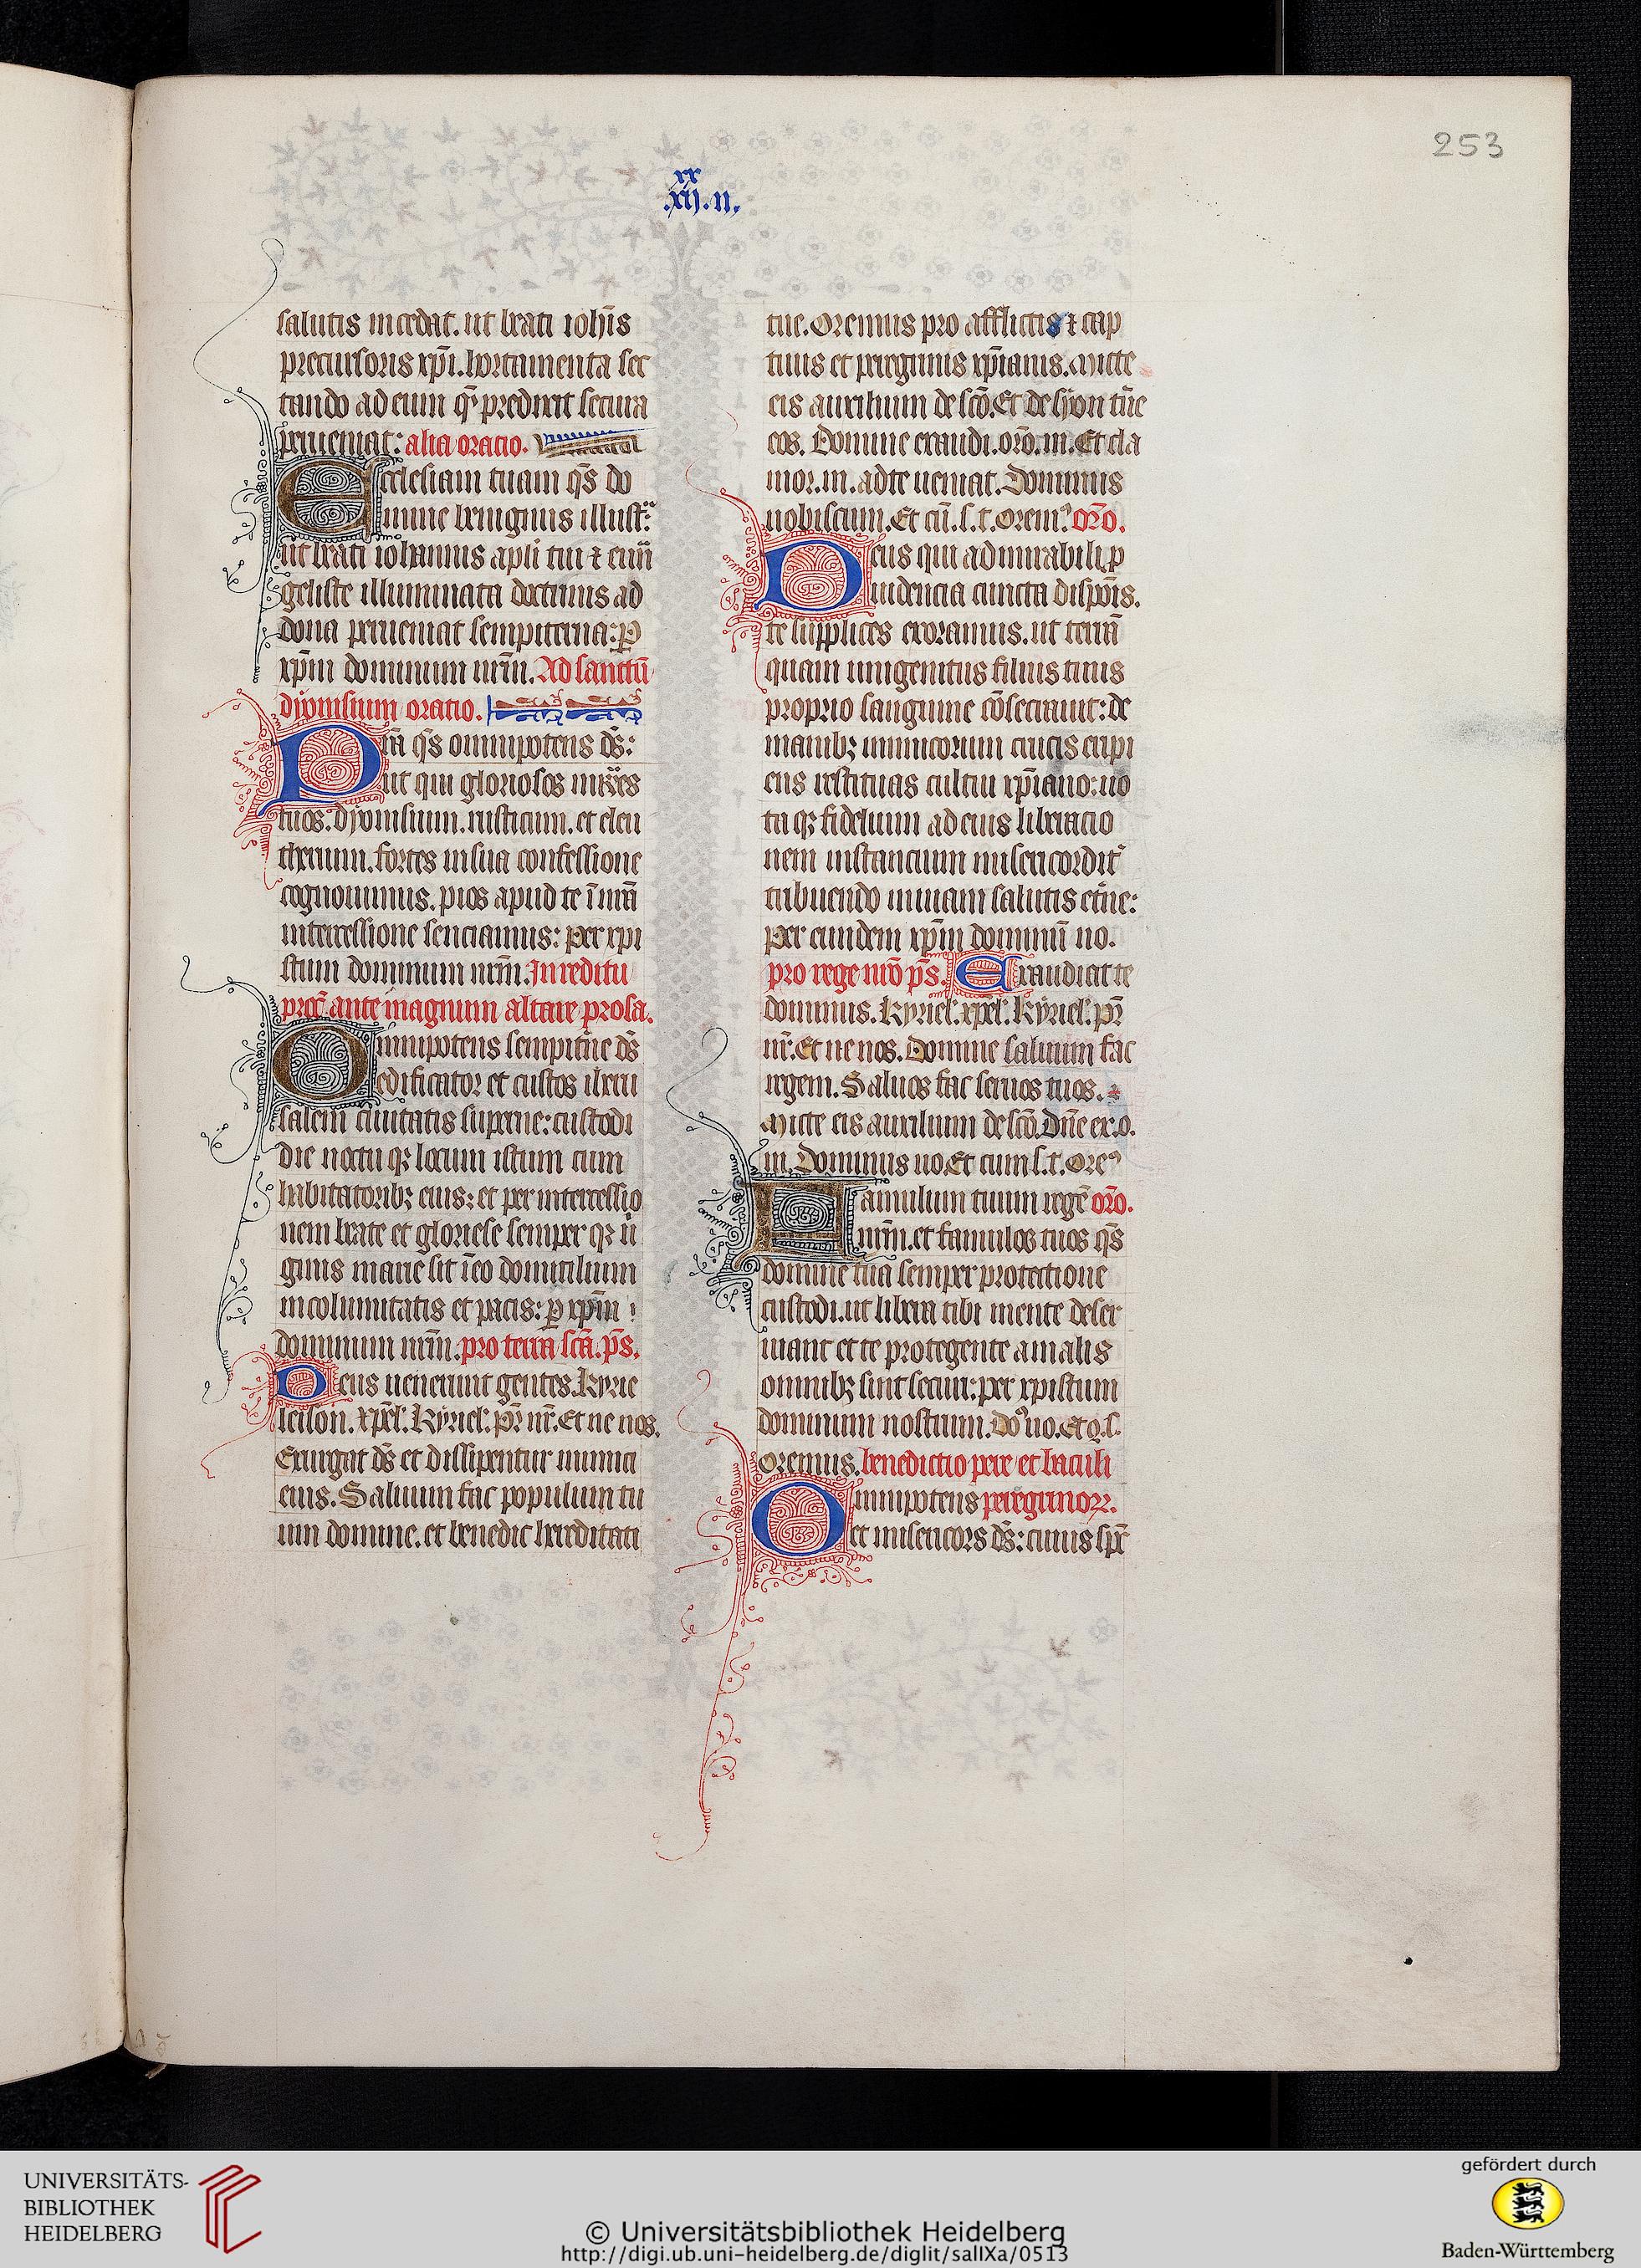 253
xx
.xij.ii.
salutis incedat. ut beati ioh̄is
precursoris xp̄i. hortamenta sec
tando ad eum q̄ predixit secura
perueniat: alia oratio.
Ecclesiam tuam q̄s do
mine benignus illustͣ:
ut beati iohannis apl̄i tui ⁊ euā
geliste illuminata doctrinis ad
dona perueniat sempiterna: ꝑ
xp̄m dominum nr̄m. Ad sanctū
dyonisium oratio.
Pr̄a q̄s omnipotens d̄s:
ut qui gloriosos mr̄es
tuos. dyonisium. rusticum. et eleu
therium. fortes in sua confessione
cognouimus. pios apud te ī nr̄a
intercessione senciamus: per xpi
stum dominum nr̄m. In reditu
proc̄. ante magnum altare prosa.
Omnipotens sempit̄ne d̄s
edificator et custos iheru
salem ciuitatis superne: custodi
die noctu qꝫ locum istum cum
habitatoribꝫ eius: et per intercessio
nem beate et gloriose semper qꝫ ū
ginis marie sit ī eo domicilium
incolumitatis et pacis: ꝑ xp̄m
dominum nr̄m. pro terra sc̄a. p̄s.
Deus uenerunt gentes. Kyrie
leison. xp̄el̄. Kyriel̄. pr̄ nr̄. Et ne nos.
Exurgat d̄s et dissipentur inimici
eius. Saluum fac populum tu
um domine. et benedic hereditati
tue. Oremus pro afflictis ⁊ cap
tiuis et peregrinis xp̄ianis. Micte
eis auxilium de sc̄o. Et de syon tūe
eos. Domine exaudi. or̄o. m. Et cla
mor. m. ad te ueniat. Dominus
nobiscum. Et cū. s. t. Oremꝰ. or̄o.
Deus qui admirabili ꝓ
uidencia cuncta dispōis.
te supplices exoramus. ut terrā
quam unigenitus filius tuus
proprio sanguine cōsecrauit: de
manibꝫ inimicorum crucis eripi
ens restituas cultui xp̄iano: uo
ta qꝫ fidelium ad eius liberacio
nem instancium misericordit̄
tribuendo in uiam salutis et̄ne:
per eundem xp̄m dominū no.
pro rege nr̄o p̄s. Exaudiat te
dominus. Kyriel̄. xp̄el̄. Kyriel̄. pr̄
nr̄. Et ne nos. Domine saluum fac
regem. Saluos fac seruos tuos.
Micte eis auxilium de sc̄o. Dn̄e ex. o.
m. Dominus uo. Et cum s. t. Oreꝰ
Famulum tuum regē or̄o.
nr̄m. et famulos tuos q̄s
domine tua semper protectione
custodi. ut libera tibi mente deser
uiant et te protegente a malis
omnibꝫ sint securi: per xpistum
dominum nostrum. Doꝰ uo. Et q. s.
Oremus. benedictio pere et baculi
Omnipotens peregrinoꝝ.
et misericors d̄s: cuius spr̄
UNIVERSITÄTS-
BIBLIOTHEK
HEIDELBERG
© Universitätsbibliothek Heidelberg
http://digi.ub.uni-heidelberg.de/diglit/salIXa/0513
gefördert durch
Baden-Württemberg